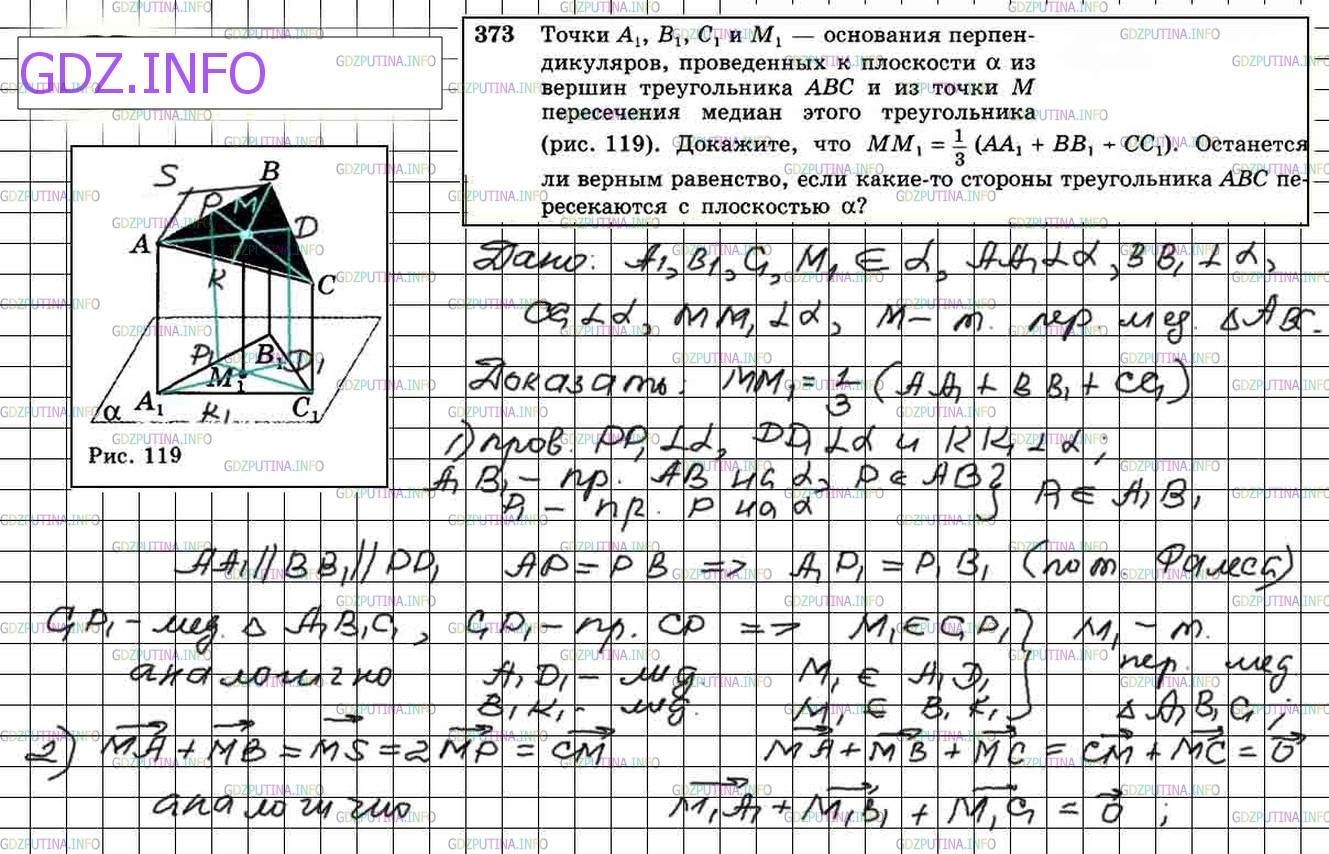 GDZ.INFO
373 Точки A₁, B₁, C₁ и M₁ — основания перпен-
дикуляров, проведенных к плоскости α из
вершин треугольника ABC и из точки M
пересечения медиан этого треугольника
(рис. 119). Докажите, что MM₁ = 1/3 (AA₁ + BB₁ + CC₁). Останется
ли верным равенство, если какие-то стороны треугольника ABC пе-
ресекаются с плоскостью α?
S
B
P
M
A
D
K
C
P₁
B₁
D₁
M₁
A₁
K₁
C₁
α
Рис. 119
Дано: A₁, B₁, C₁, M₁ ∈ α, AA₁ ⊥ α, BB₁ ⊥ α,
CC₁ ⊥ α, MM₁ ⊥ α, M — т. пер. мед. △ABC.
Доказать: MM₁ = 1/3 (AA₁ + BB₁ + CC₁)
1) пров. PP₁ ⊥ α, DD₁ ⊥ α и KK₁ ⊥ α;
A₁B₁ — пр. AB на α, P ∈ AB } P₁ ∈ A₁B₁
P₁ — пр. P на α
AA₁ // BB₁ // PP₁ AP = PB => A₁P₁ = P₁B₁ (по т. Фалеса)
C₁P₁ — мед. △ A₁B₁C₁, C₁P₁ — пр. CP => M₁ ∈ C₁P₁ } M₁ — т.
аналогично A₁D₁ — мед. M₁ ∈ A₁D₁ пер. мед.
B₁K₁ — мед. M₁ ∈ B₁K₁ △ A₁B₁C₁;
2) MA + MB = MS = 2MP = CM MA + MB + MC = CM + MC = 0
аналогично M₁A₁ + M₁B₁ + M₁C₁ = 0;
GDZPUTINA.INFO